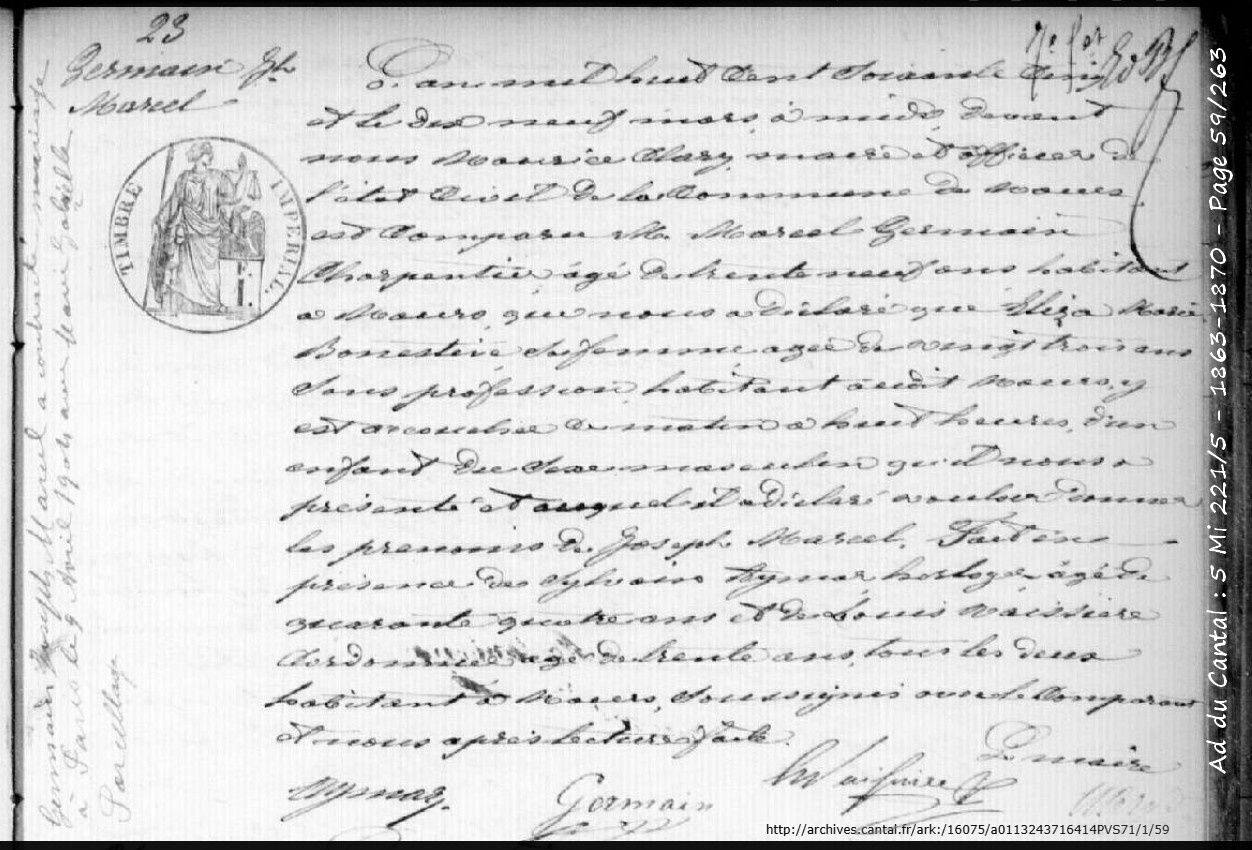 23
Germain Jh
Marcel
TIMBRE IMPERIAL.
L'an mil huit cent soixante cinq
et le dix neuf mars, à midi, devant
nous Maurice Clary, maire et officier de
l'état civil de la commune de Maurs
est comparu M. Marcel Germain
Charpentier âgé de trente neuf ans habitant
a Maurs, que nous a déclaré que Eliza Marie
Bonestève sa femme agée de vingt trois ans
sans profession, habitant audit Maurs, y
est accouchée ce matin à huit heures, d'un
enfant du sexe masculin qu'il nous a
présenté et auquel il a déclaré vouloir donner
les prenoms de Joseph Marcel. Fait en
présence de Sylvain Aymar, horloger âgé de
quarante quatre ans et de Louis Vaissière
Cordonnier agé de trente ans, tous les deux
habitant à Maurs, soussignés avec le comparant
et nous après lecture faite.
Le maire
Aymar.
Germain
Vaissière
Germain Joseph Marcel a contracté mariage
à Paris le 9 Avril 1904 avec Marie Gabrielle
Ad du Cantal : 5 Mi 221/5 - 1863-1870 - Page 59/263
http://archives.cantal.fr/ark:/16075/a0113243716414PVS71/1/59